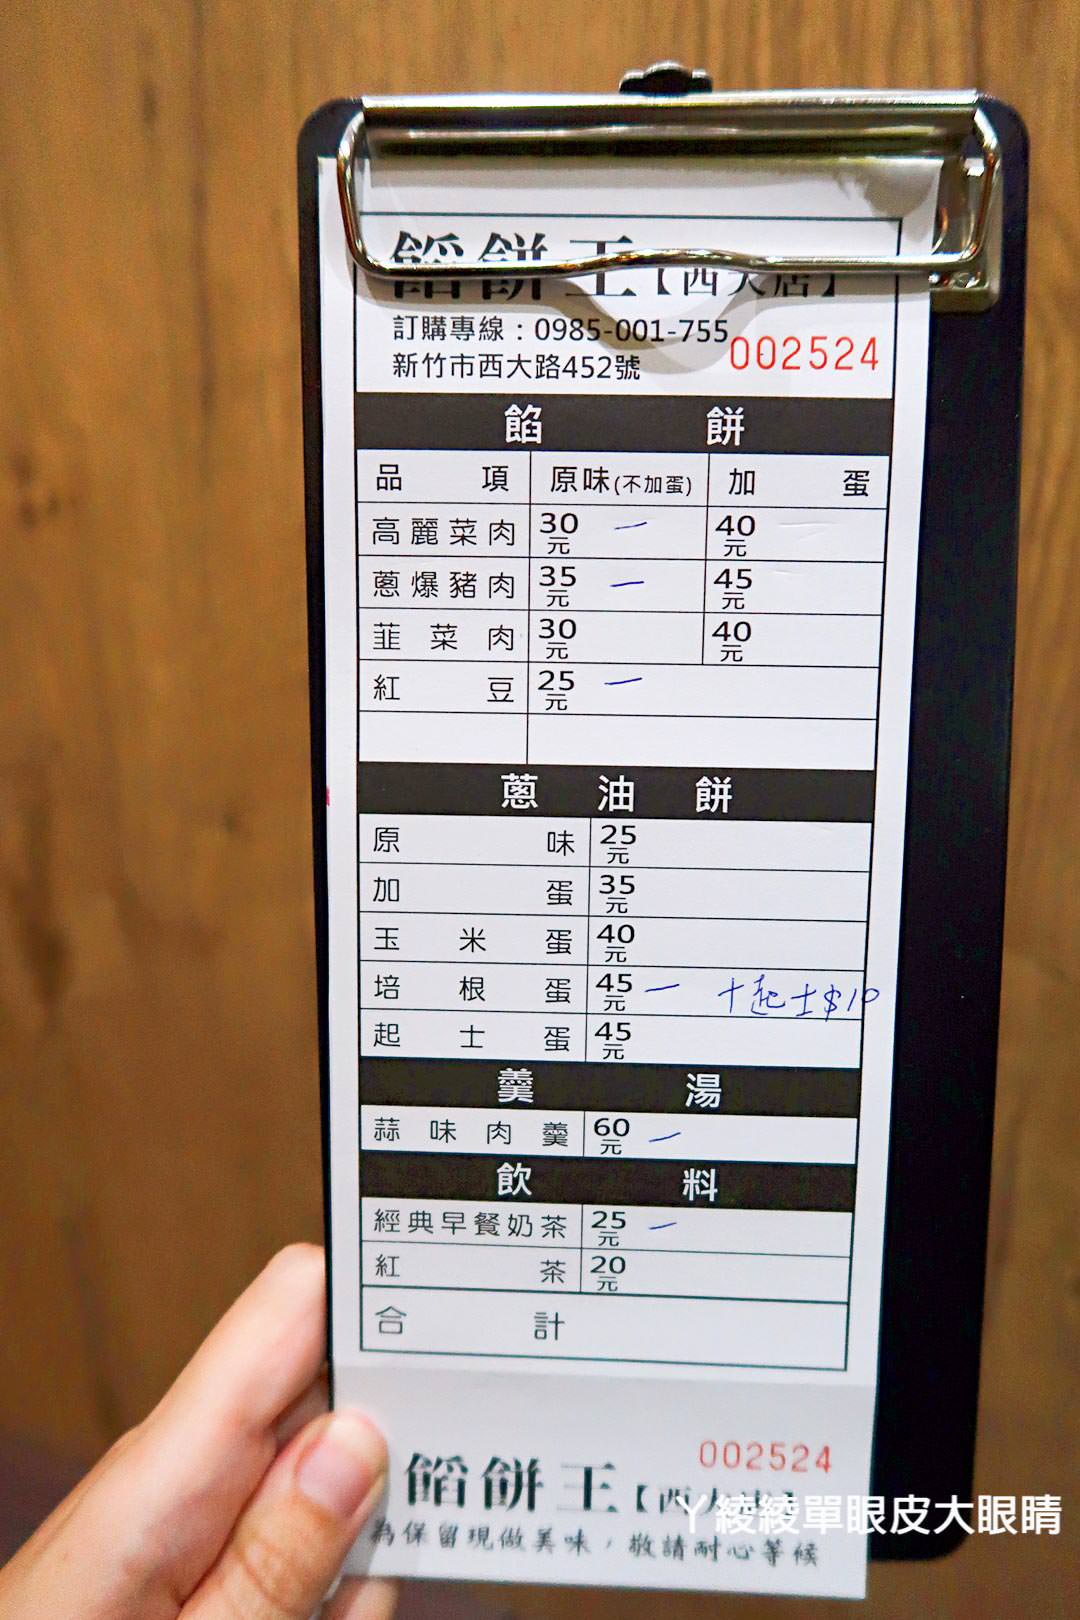 餡餅王【西大店】
訂購專線：0985-001-755
新竹市西大路452號
002524
餡餅
品項 原味(不加蛋) 加蛋
高麗菜肉 30元 一 40元
蔥爆豬肉 35元 一 45元
韮菜肉 30元 40元
紅豆 25元 一
蔥油餅
原味 25元
加蛋 35元
玉米蛋 40元
培根蛋 45元 一 +起士$10
起士蛋 45元
羹湯
蒜味肉羹 60元 一
飲料
經典早餐奶茶 25元 一
紅茶 20元
合計
002524
餡餅王【西大店】
為保留現做美味，敬請耐心等候
ㄚ綾綾單眼皮大眼睛